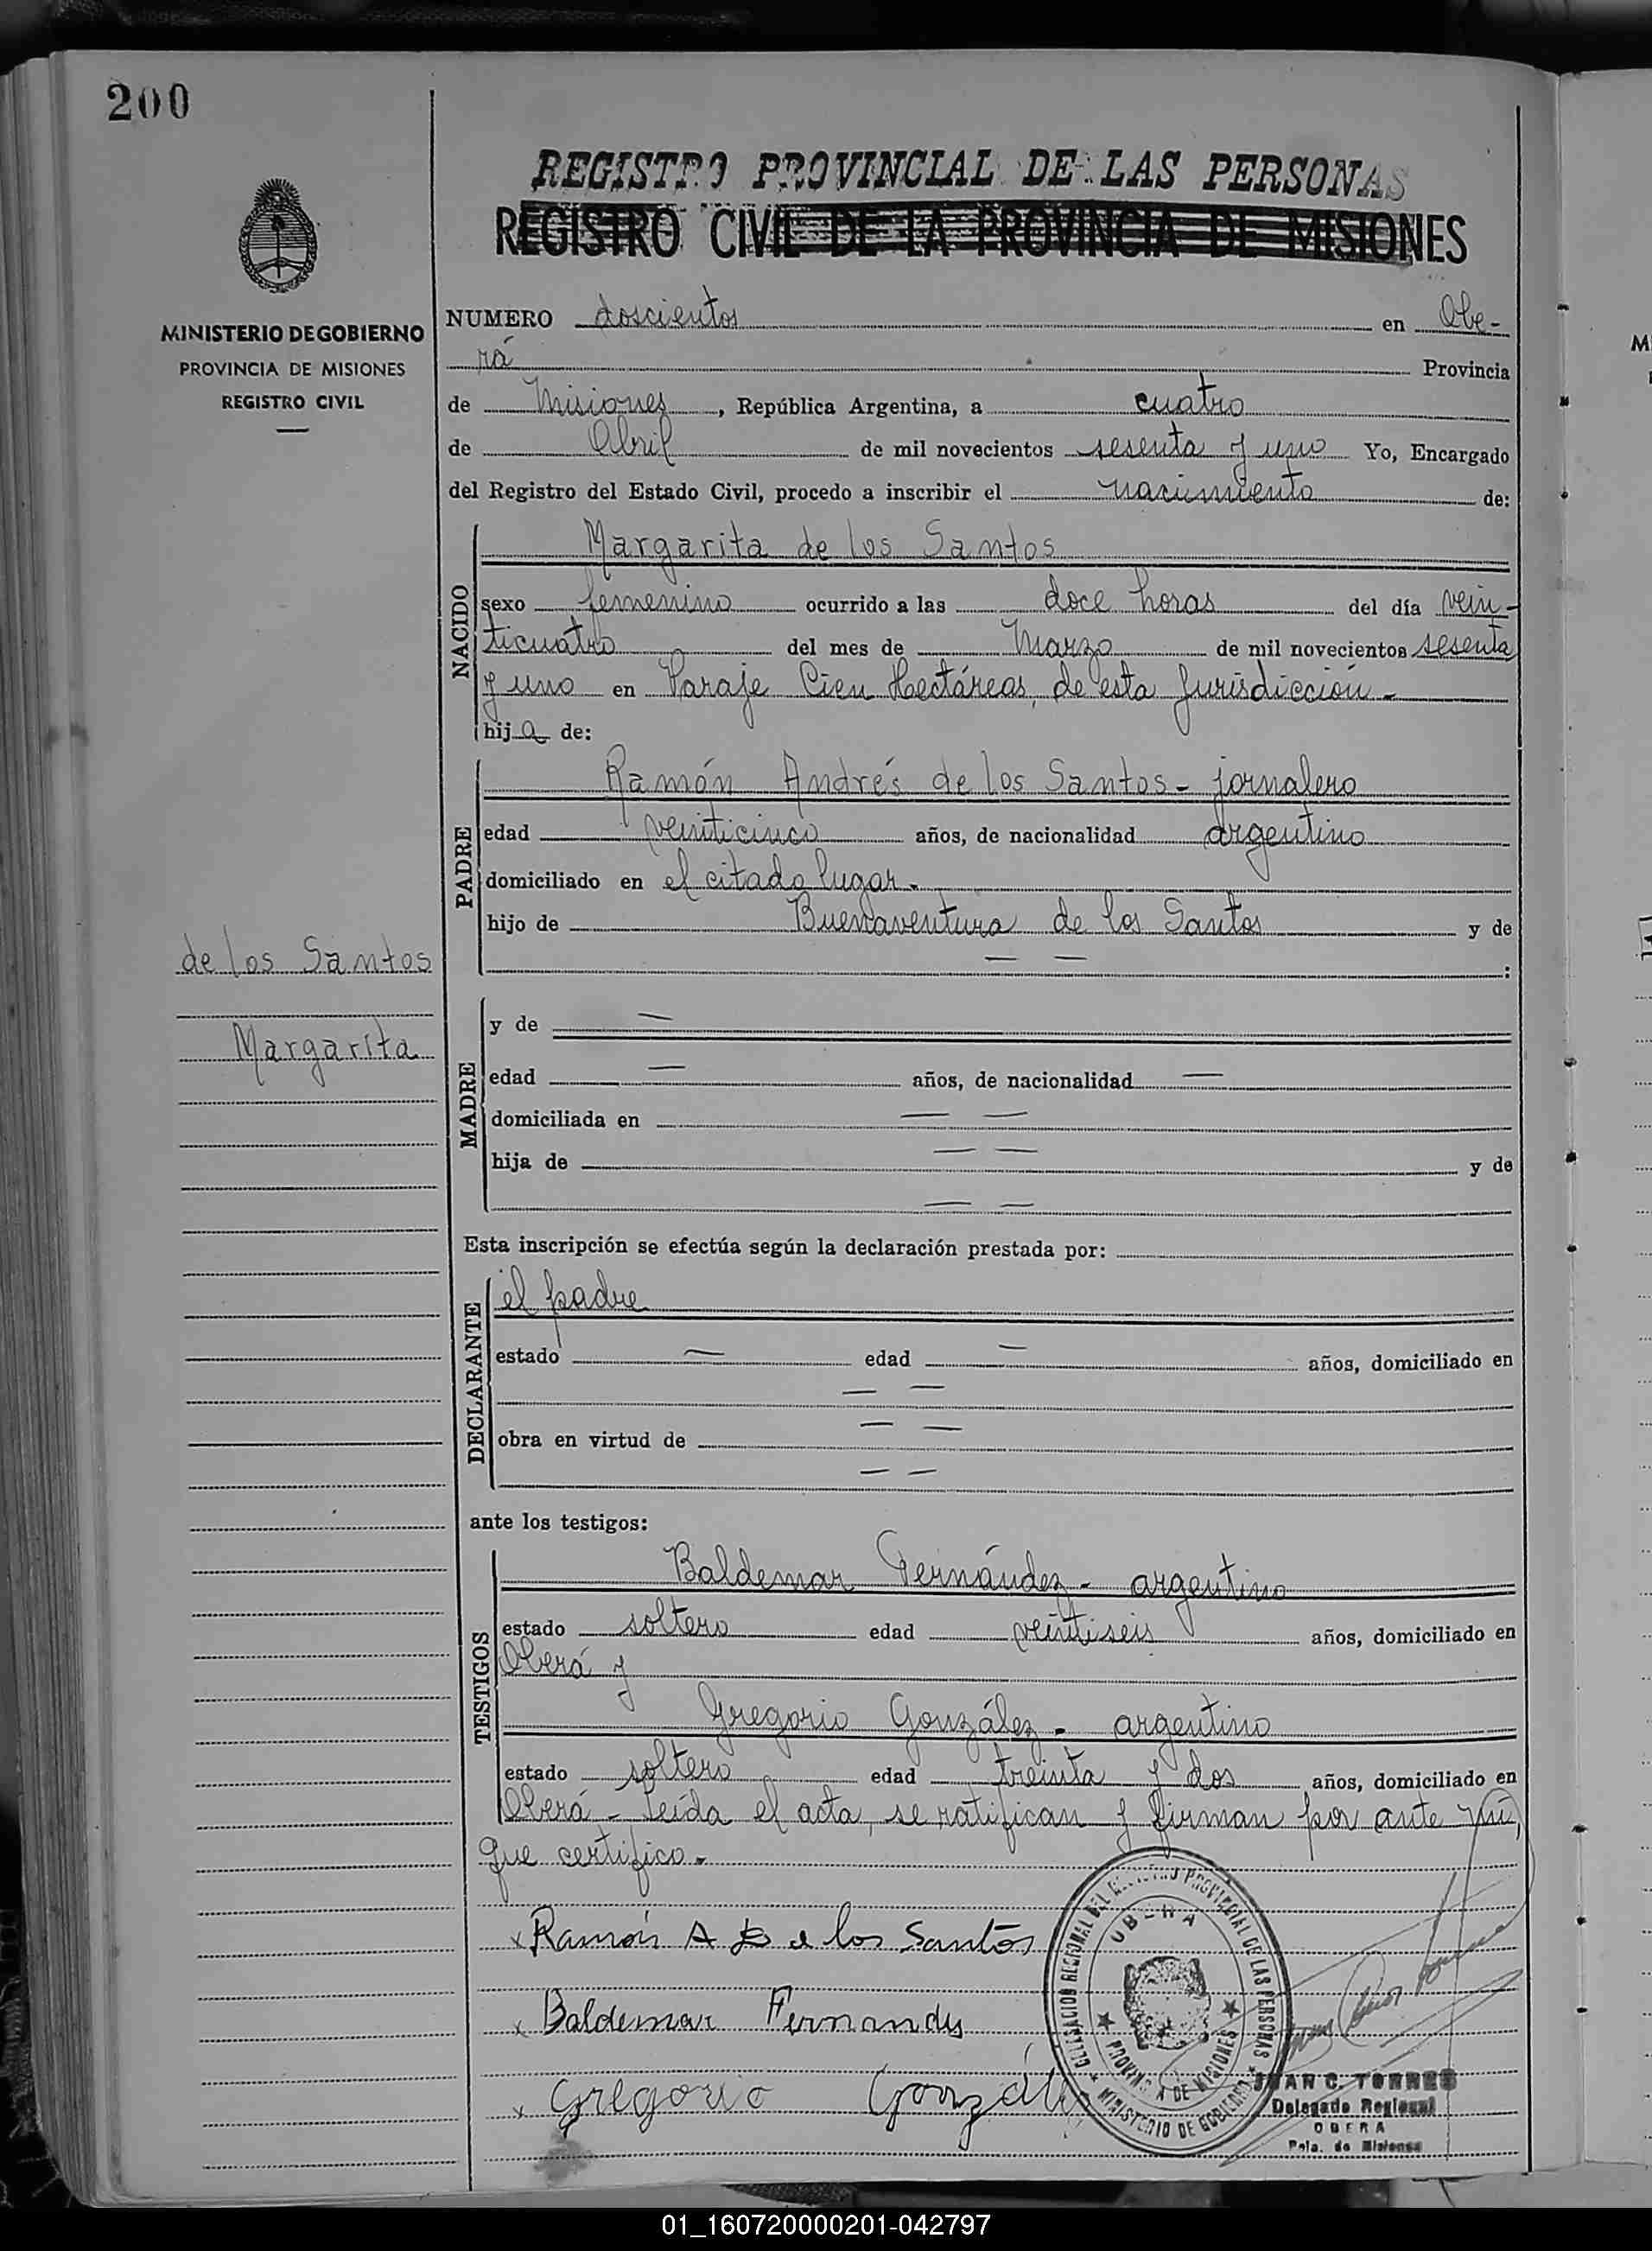 200
REGISTRO PROVINCIAL DE LAS PERSONAS
REGISTRO CIVIL DE LA PROVINCIA DE MISIONES
MINISTERIO DE GOBIERNO
PROVINCIA DE MISIONES
REGISTRO CIVIL
NUMERO doscientos en Obe-
rá Provincia
de Misiones, República Argentina, a cuatro
de Abril de mil novecientos sesenta y uno Yo, Encargado
del Registro del Estado Civil, procedo a inscribir el nacimiento de:
NACIDO
Margarita de los Santos
sexo femenino ocurrido a las doce horas del día vein-
ticuatro del mes de Marzo de mil novecientos sesenta
y uno en Paraje Cien Hectáreas, de esta Jurisdicción.-
hija de:
PADRE
Ramón Andrés de los Santos - jornalero
edad veinticinco años, de nacionalidad argentino
domiciliado en el citado lugar.
hijo de Buenaventura de los Santos y de
— — :
de los Santos
Margarita
MADRE
y de —
edad — años, de nacionalidad —
domiciliada en — —
hija de — — y de
— —
Esta inscripción se efectúa según la declaración prestada por:
DECLARANTE
el padre
estado — edad — años, domiciliado en
— —
obra en virtud de — —
— —
ante los testigos:
TESTIGOS
Baldemar Fernández - argentino
estado soltero edad veintiseis años, domiciliado en
Oberá y
Gregorio González - argentino
estado soltero edad treinta y dos años, domiciliado en
Oberá - Leída el acta, se ratifican y firman por ante mí,
que certifico.-
x Ramón A de los Santos
x Baldemar Fernandez
x Gregorio González
DELEGACION REGIONAL DEL REGISTRO PROVINCIAL DE LAS PERSONAS
OBERA
PROVINCIA DE MISIONES
MINISTERIO DE GOBIERNO
JUAN C. TORRES
Delegado Regional
OBERA
Pcia. de Misiones
01_160720000201-042797